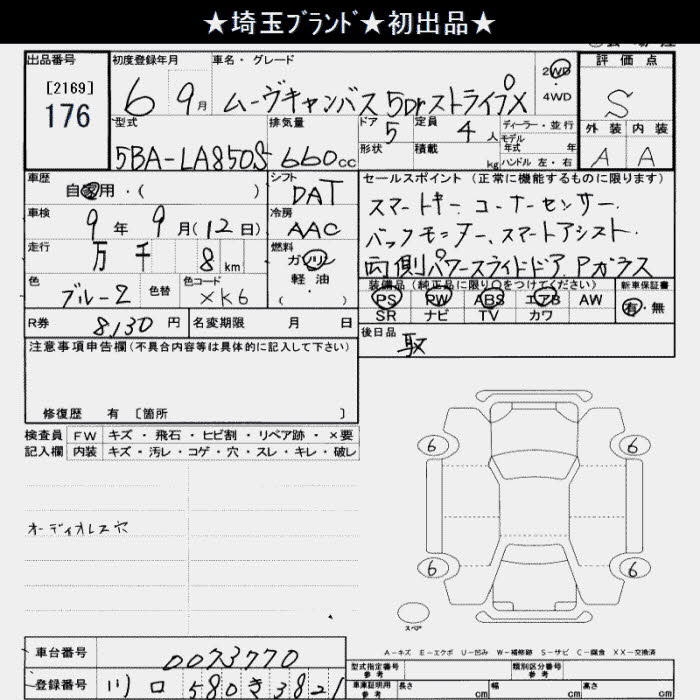 ★埼玉ﾌﾞﾗﾝﾄﾞ★初出品★
出品番号
[2169]
176
初度登録年月
6 9月
車名・グレード
ムーヴキャンバス 5Dr ストライプX
2WD
・
4WD
評価点
S
外装 内装
A A
型式
5BA-LA850S
排気量
660cc
ドア
5
定員
4人
形状
積載
kg
ディーラー・並行
モデル
年式 年
ハンドル 左・右
車歴
自家用・( )
シフト
DAT
セールスポイント (正常に機能するものに限ります)
スマートキー. コーナーセンサー.
バックモニター、スマートアシスト.
両側パワースライドドア. Pガラス
車検
9年 9月(12日)
冷房
AAC
走行
万 千 8km
燃料
ガソリン
・
軽油
( )
色
ブルー2
色替
色コード
XK6
装備品(純正品に限り○をつけてください)
PS PW ABS エアB AW
SR ナビ TV カワ
新車保証書
有・無
R券 8,130円
名変期限 月 日
後日品
取
注意事項申告欄(不具合内容等は具体的に記入して下さい)
修復歴 有 〔箇所 〕
検査員
記入欄
FW キズ・飛石・ヒビ割・リペア跡・×要
内装 キズ・汚レ・コゲ・穴・スレ・キレ・破レ
オーディオレス穴
6 6
6 6
スペア
A-キズ E-エクボ U-凹み W-補修跡 S-サビ C-腐食 XX-交換済
車台番号 0073770
登録番号 川口 580 き 3821
型式指定番号
参考
類別区分番号
参考
車庫証明用
参考
長さ cm 幅 cm 高さ cm